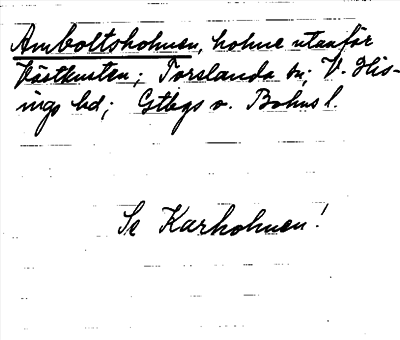 Amboltsholmen, holme utanför
Västkusten; Torslanda sn; V. His-
ings hd; Gtbgs o. Bohus l.
Se Karholmen!